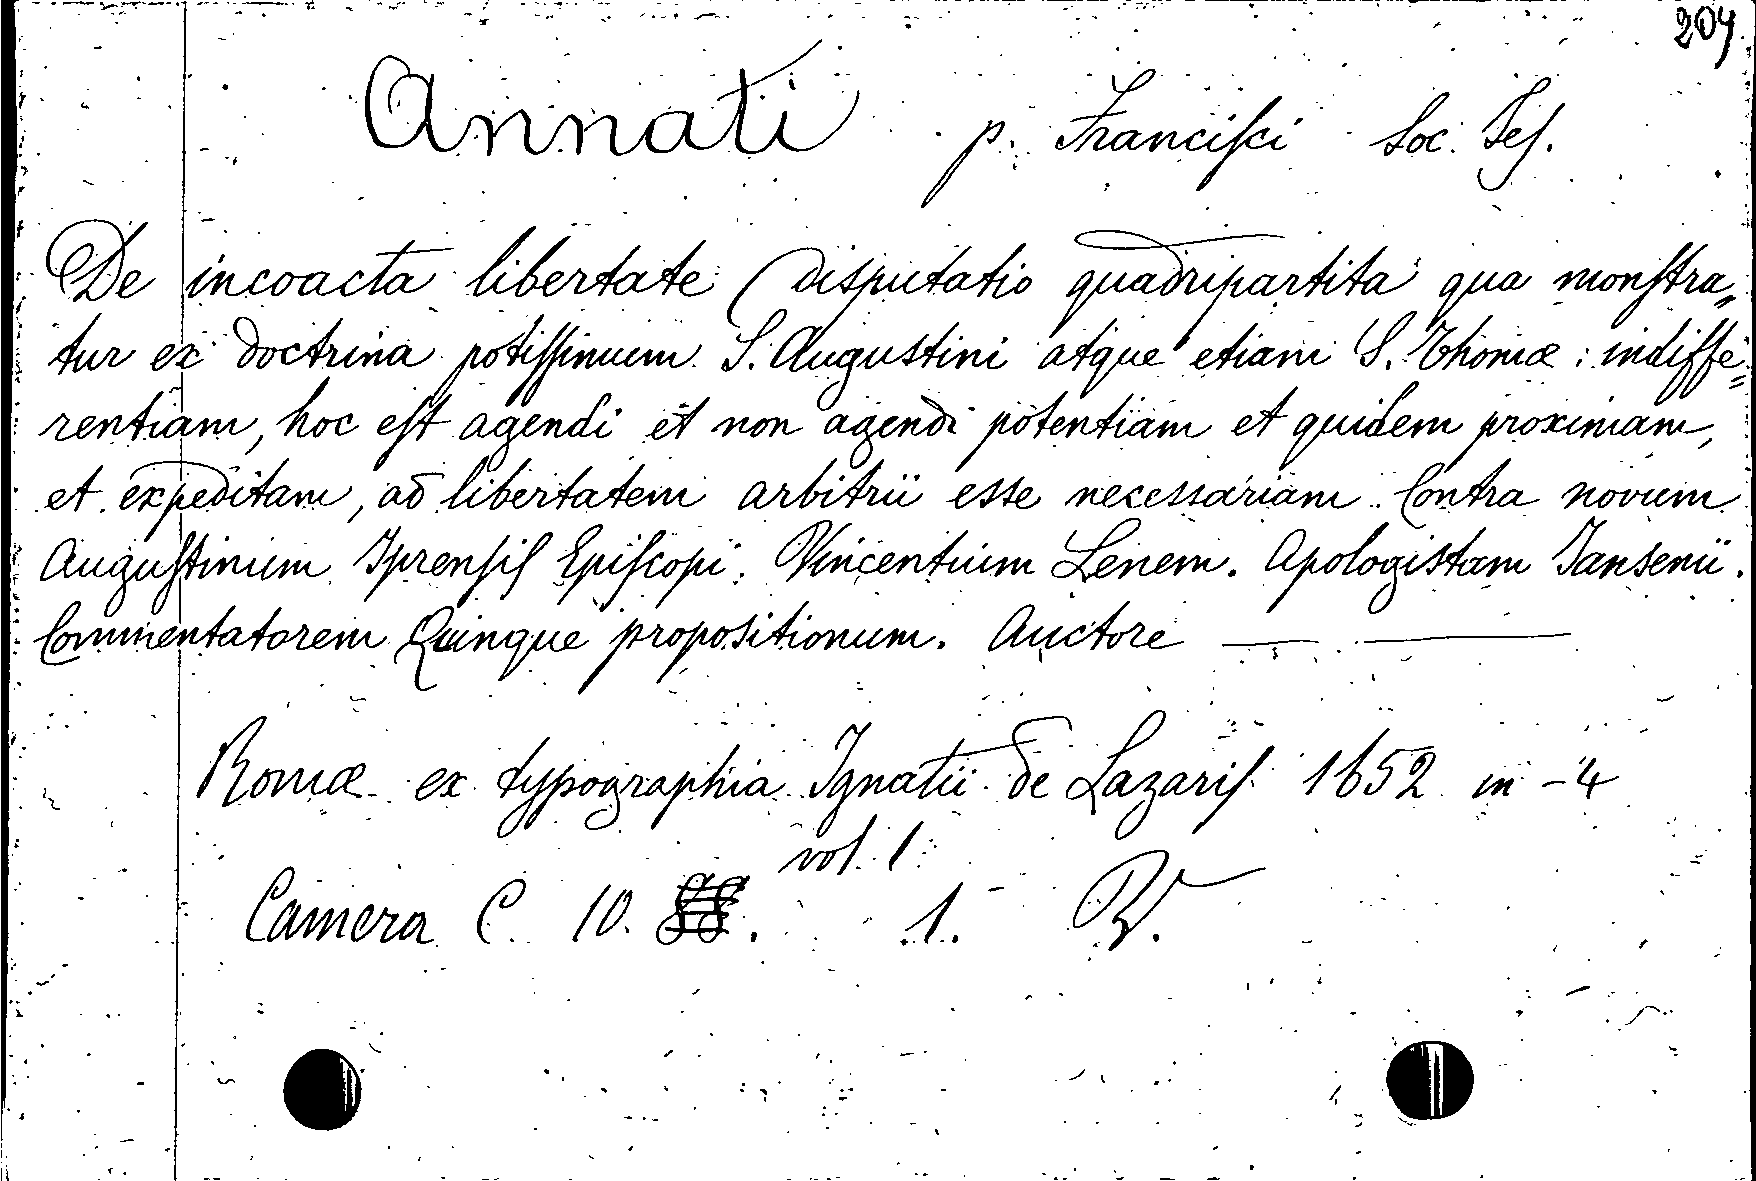 204
Annati p. Francisci Soc. Jes.
De incoacta libertate (disputatio quadripartita qua monstra„
tur ex doctrina potissimum S. Augustini atque etiam S. Thomæ: indiffe=
rentiam, hoc est agendi et non agendi potentiam et quidem proximam,
et expeditam, ad libertatem arbitrii esse necessariam. Contra novum
Augustinum Iprensis Episcopi. Vincentium Lenem. Apologistam Jansenii.
Commentatorem Quinque propositionum. Auctore — —
Romæ ex typographia Ignatii de Lazaris 1652 in-4
vol. 1
Camera C. 10. 1. R.